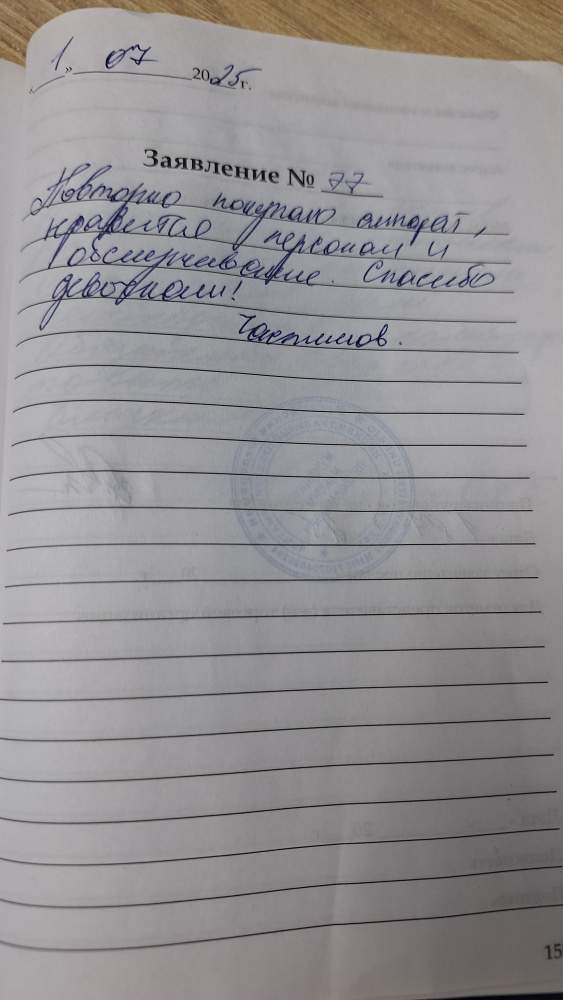 1 » 07 2025 г.
Заявление № 77
Повторно покупаю аппарат,
нравится персонал и
обслуживание. Спасибо
девочкам!
15